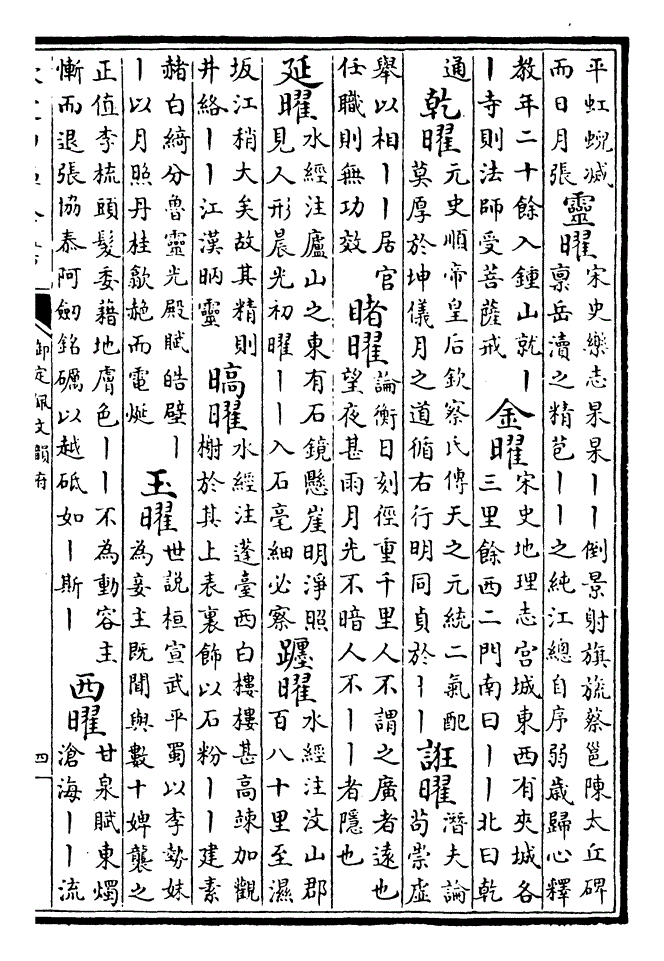 平虹蜺減
而日月張
靈曜
宋史樂志杲杲丨丨倒景射旗旒蔡邕陳太丘碑
禀岳瀆之精苞丨丨之純江總自序弱歲歸心釋
教年二十餘入鍾山就丨
丨寺則法師受菩薩戒
金曜
宋史地理志宮城東西有夾城各
三里餘西二門南曰丨丨北曰乾
通
乾曜
元史順帝皇后欽察氏傳天之元統二氣配
莫厚於坤儀月之道循右行明同貞於丨丨
誑曜
潛夫論
苟崇虛
舉以相丨丨居官
任職則無功效
睹曜
論衡日刻徑重千里人不謂之廣者遠也
望夜甚雨月光不暗人不丨丨者隱也
延曜
水經注廬山之東有石鏡懸崖明淨照
見人形晨光初曜丨丨入石毫細必察
躔曜
水經注汶山郡
百八十里至濕
坂江稍大矣故其精則
井絡丨丨江漢昞靈
皜曜
水經注蓬臺西白樓樓甚高竦加觀
榭於其上表裏飾以石粉丨丨建素
赭白綺分魯靈光殿賦皓壁丨
丨以月照丹桂歙赩而電烻
玉曜
世説桓宣武平蜀以李勢妹
為妾主既聞與數十婢襲之
正值李梳頭髮委藉地膚色丨丨不為動容主
慚而退張協泰阿劒銘礪以越砥如丨斯丨
西曜
甘泉賦東燭
滄海丨丨流
御定佩文韻府
四